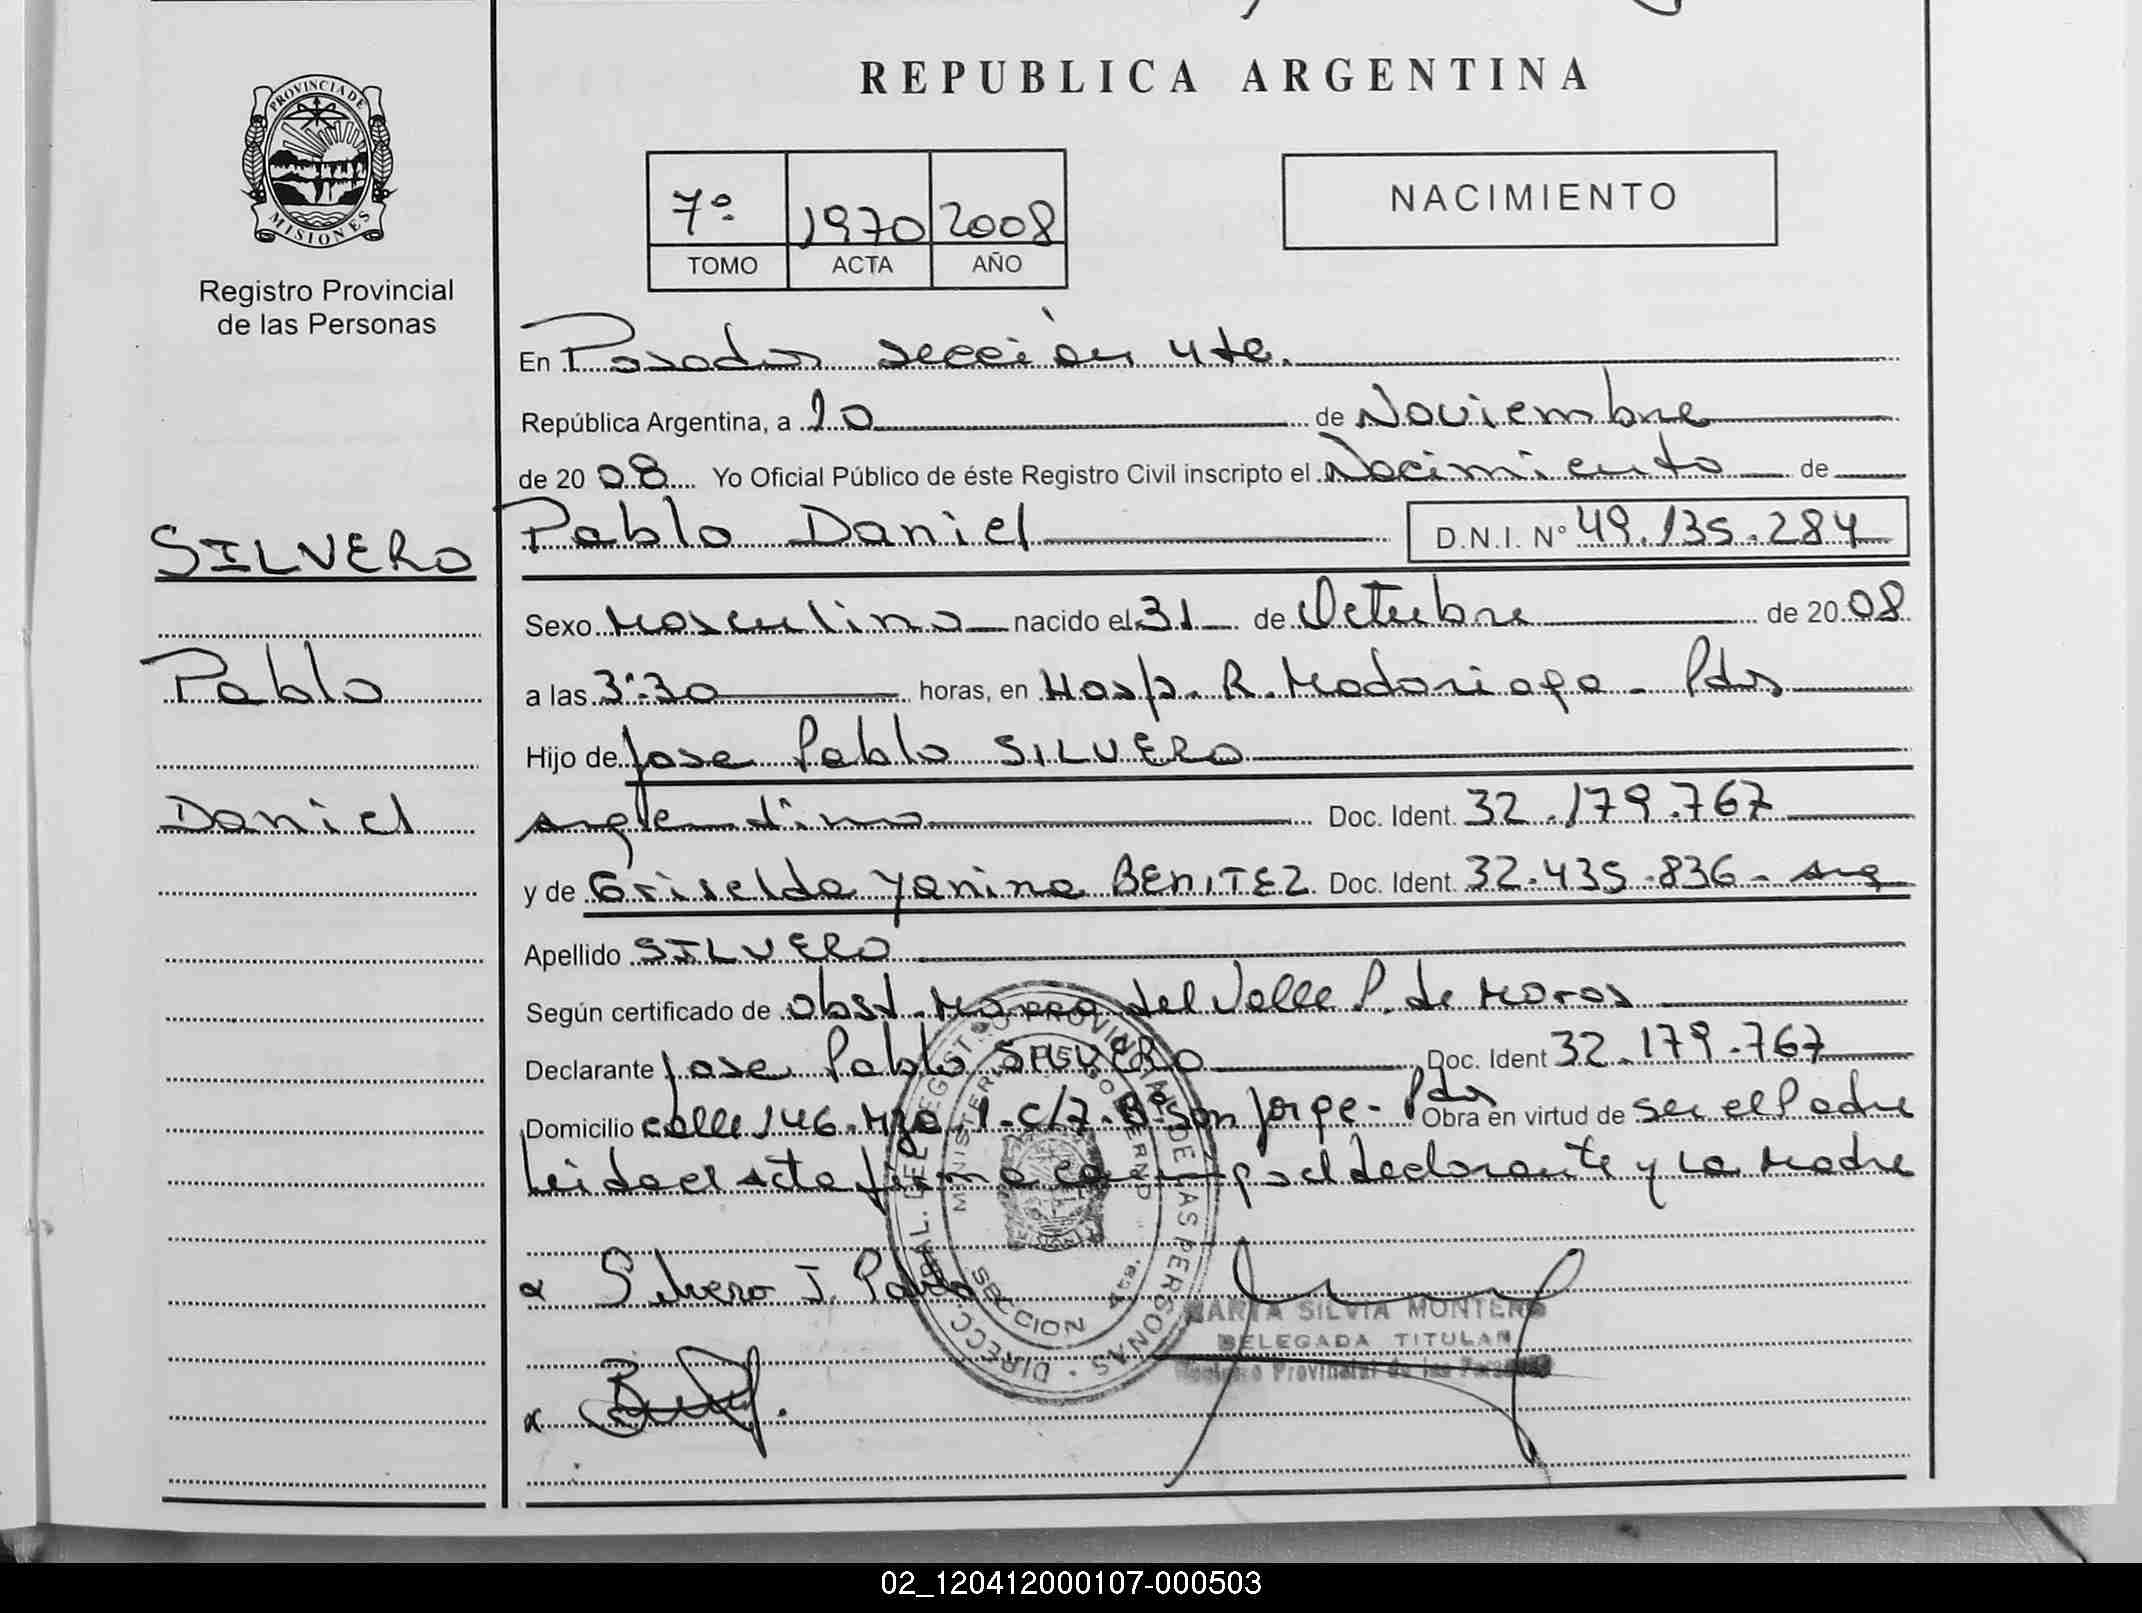 REPUBLICA ARGENTINA
PROVINCIA DE
MISIONES
Registro Provincial
de las Personas
7º 1970 2008
TOMO ACTA AÑO
NACIMIENTO
En Posadas sección 4ta.
República Argentina, a 10 de Noviembre
de 2008 Yo Oficial Público de éste Registro Civil inscripto el Nacimiento de
SILVERO
Pablo
Daniel
Pablo Daniel D.N.I. Nº 49.135.284
Sexo Masculino nacido el 31 de Octubre de 2008
a las 3:30 horas, en Hosp. R. Madariaga - Pdas
Hijo de Jose Pablo SILVERO
argentino Doc. Ident. 32.179.767
y de Griselda Yanina BENITEZ Doc. Ident. 32.435.836 - arg
Apellido SILVERO
Según certificado de obst. del Valle P. de Moras
Declarante Jose Pablo SILVERO Doc. Ident 32.179.767
Domicilio calle 146. Mza 1 - C/7 - Bº San Jorge - Pdas Obra en virtud de ser el Padre
Leida el acta firma conmigo el declarante y la Madre
Silvero J. Pablo
DIRECC. GRAL. DEL REGISTRO PROVINCIAL DE LAS PERSONAS
MINISTERIO DE GOBIERNO
SECCION 4ta.
MARTA SILVIA MONTERO
DELEGADA TITULAR
Registro Provincial de las Personas
02_120412000107-000503